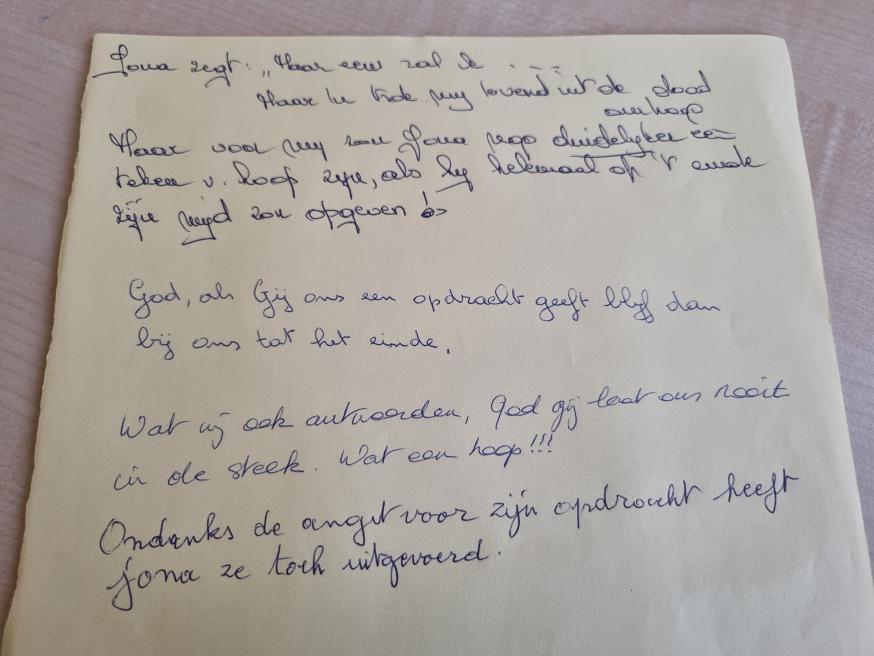 Jona zegt: „Maar eens zal ik ...
Maar U trok mij levend uit de dood
omhoog
Maar voor mij zou Jona nog duidelijker een
teken v. hoop zijn, als hij helemaal op 't einde
zijn nijd zou opgeven !
God, als Gij ons een opdracht geeft blijf dan
bij ons tot het einde.
Wat wij ook antwoorden, God gij laat ons nooit
in de steek. Wat een hoop!!!
Ondanks de angst voor zijn opdracht heeft
Jona ze toch uitgevoerd.